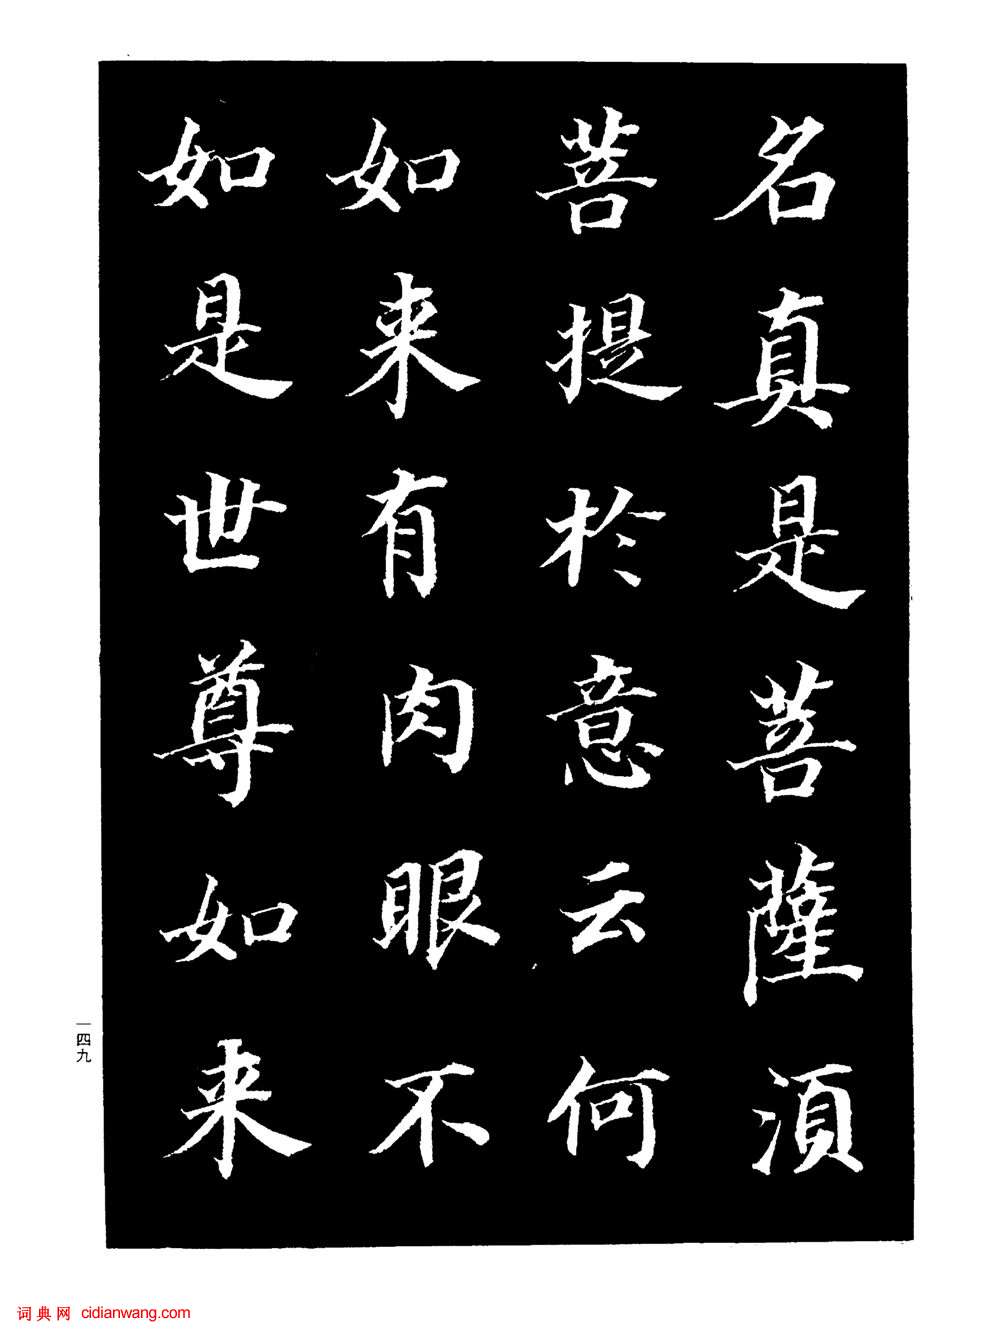 名真是菩薩湏
菩提於意云何
如来有肉眼不
如是世尊如来
一四九
词典网 cidianwang.com